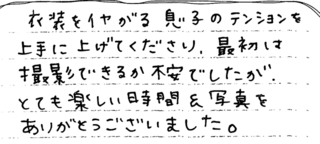 衣装をイヤがる 息子のテンションを
上手に上げてくださり、最初は
撮影できるか不安でしたが、
とても楽しい時間&写真を
ありがとうございました。